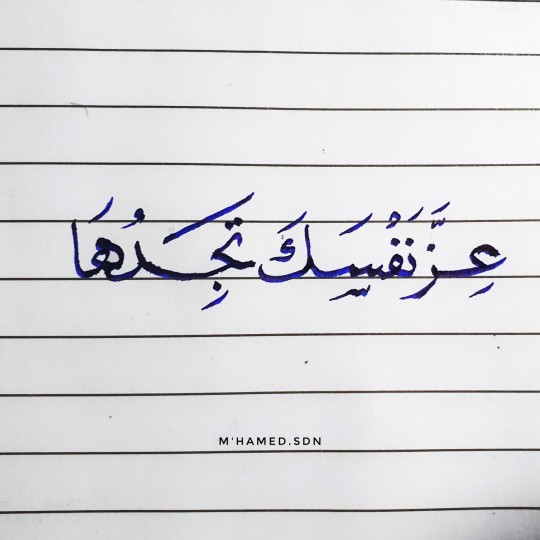 عِزَّ نَفْسَكَ تَجِدُهَا
M'HAMED.SDN